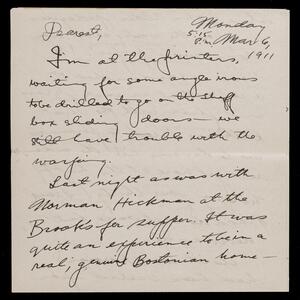 Dearest,
Monday
5:15
P.M. Mar 6,
1911
I'm at the printers,
waiting for some angle irons
to be drilled to go on the
box sliding doors - we
still have trouble with the
warping.
Last night as was with
Norman Hickman at the
Brook's for supper. It was
quite an experience to be in a
real, genuine Bostonian home -